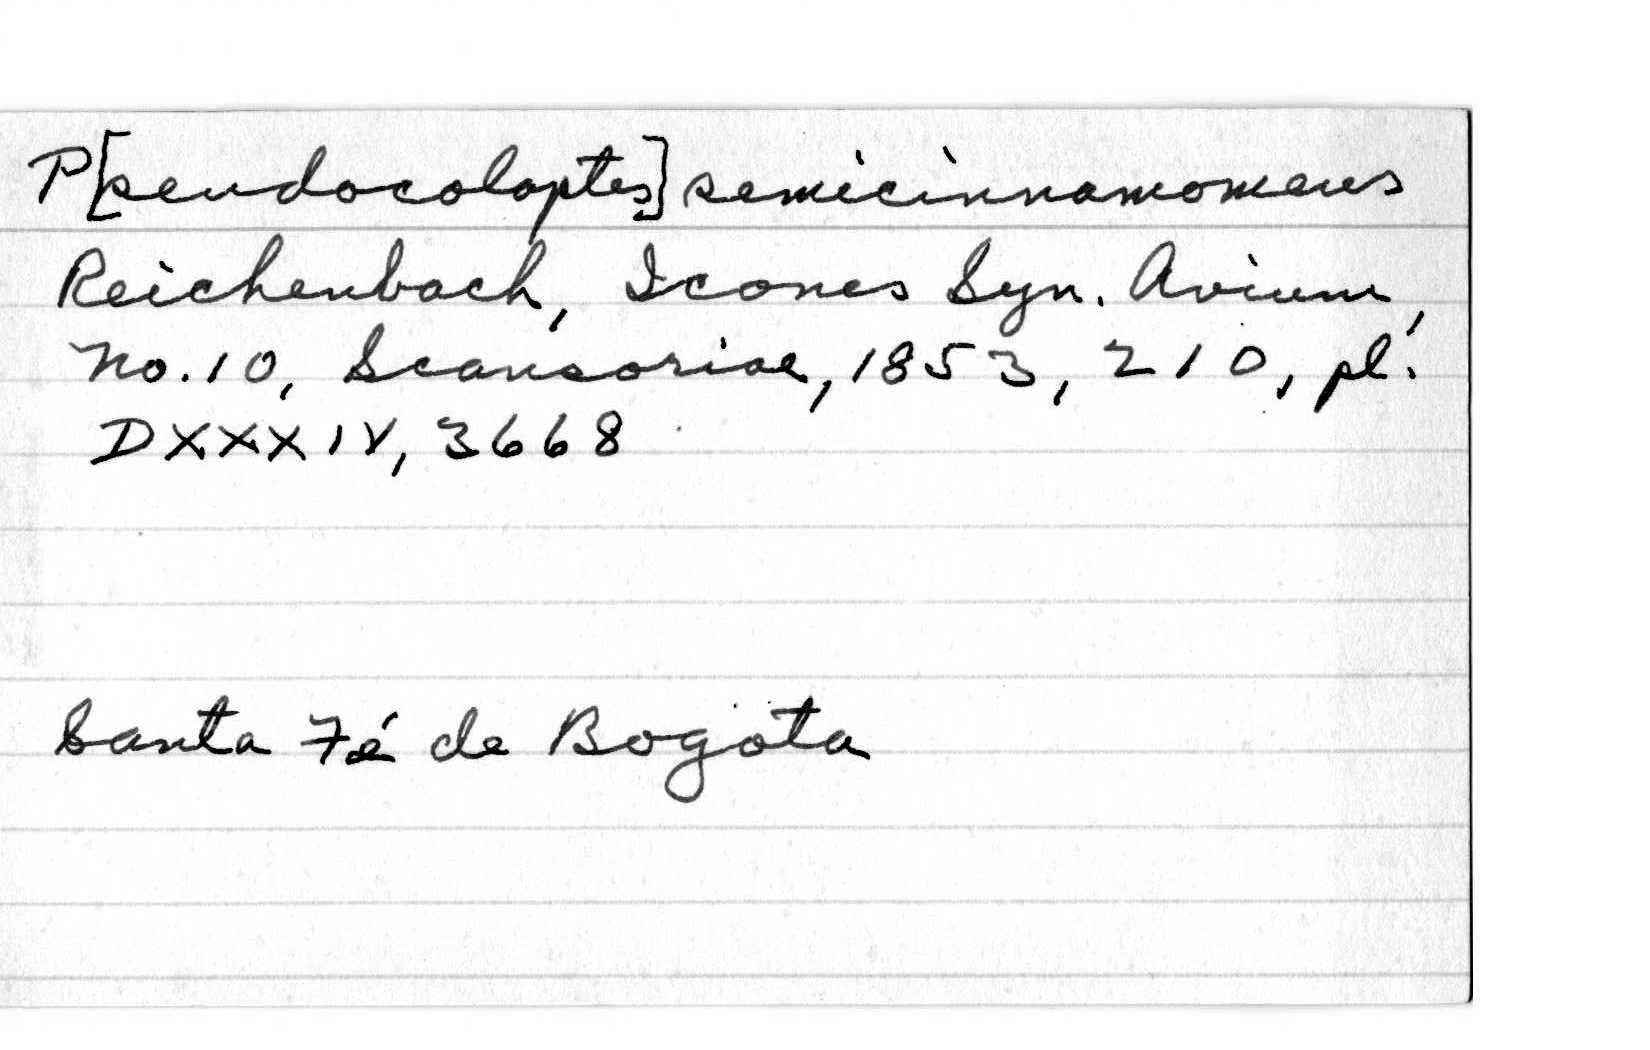 P[seudocolaptes] semicinnamomeus
Reichenbach, Icones Syn. Avium,
No. 10, Scansoriae, 1853, 210, pl.
DXXXIV, 3668
Santa Fé de Bogota